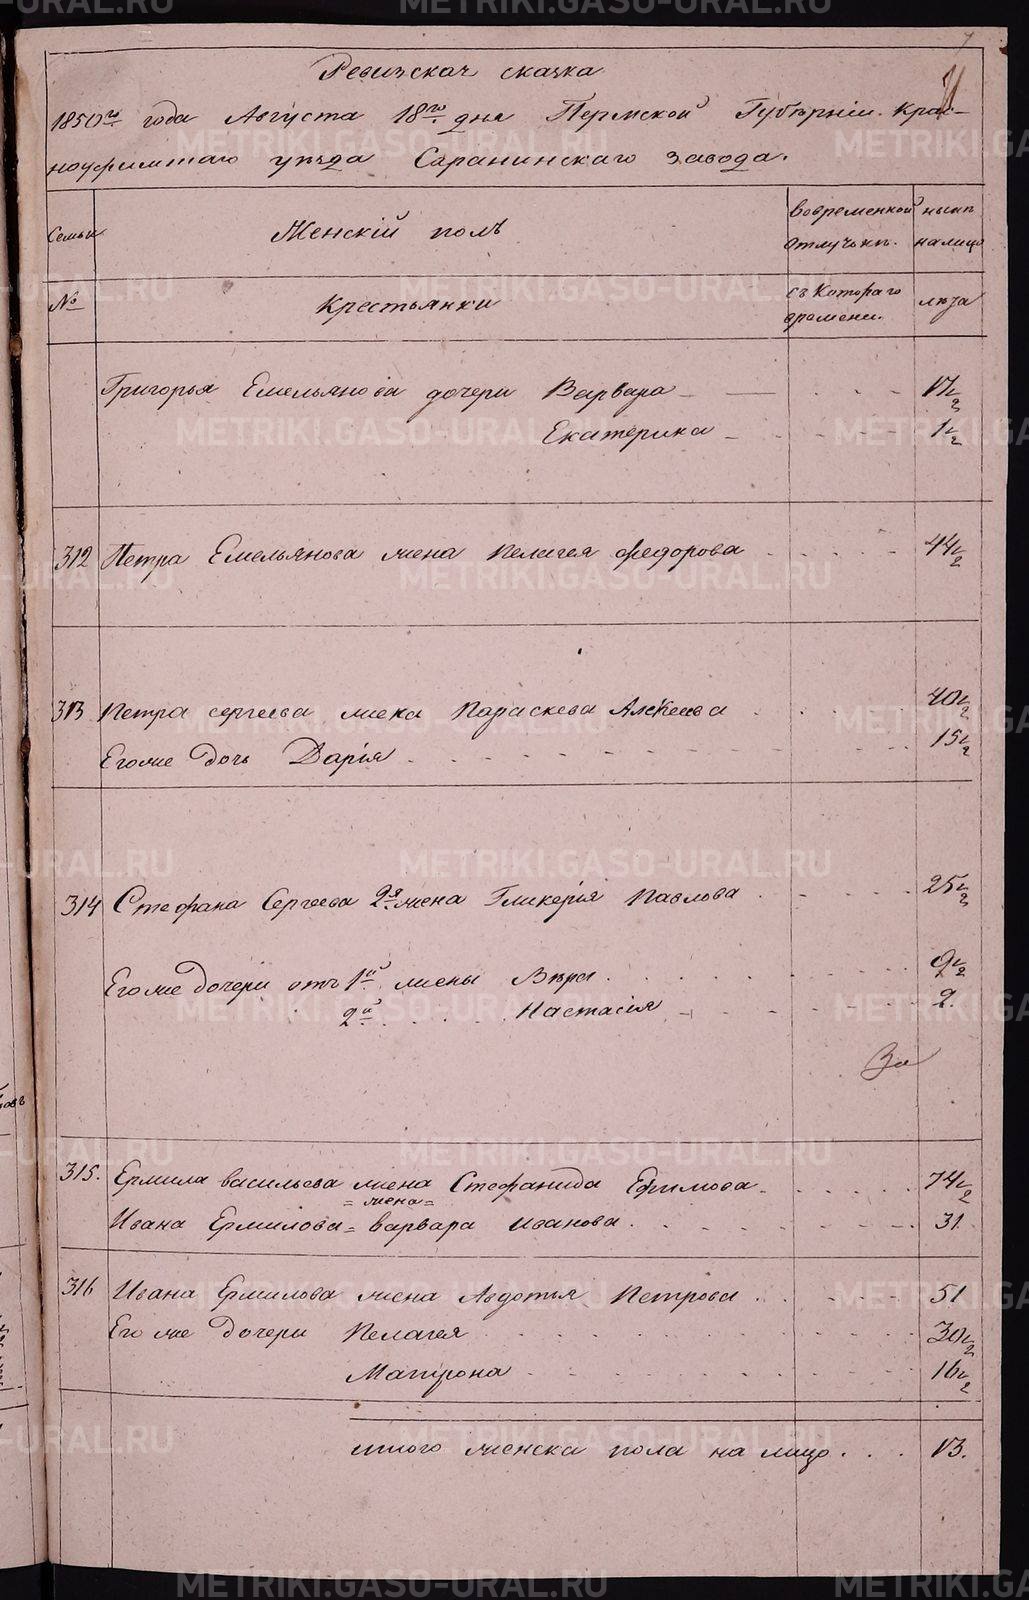 Ревизская сказка
1850го года Августа 18го дня Пермской Губерніи. Крас-
ноуфимскаго уѣзда Саранинскаго завода.
Семьи
Женскій полъ
Вовременной отлучкѣ.
нынѣ на лицо
№
Крестьянки
съ Котораго времени.
лѣта
Григорья Емельянова дочери Варвара 17 1/2
Екатерина 1 1/2
312 Петра Емельянова жена Пелагея Федорова 44 1/2
313 Петра Сергеева жена Параскева Алкеева 40 1/2
Егоже дочь Дарія 15 1/2
314 Стефана Сергеева 2я жена Гликерія Павлова 25 1/2
Егоже дочери отъ 1й жены Вѣра 9 1/2
2й Настасія 2.
За
315. Ермила Васильева жена Стефанида Ефимова 74 1/2
= жена =
Ивана Ермилова = Варвара Иванова 31.
316 Ивана Ермилова жена Авдотья Петрова 51
Его же дочери Пелагея 30 1/2
Матрона 16 1/2
итого женска пола на лицо 13.
METRIKI.GASO-URAL.RU